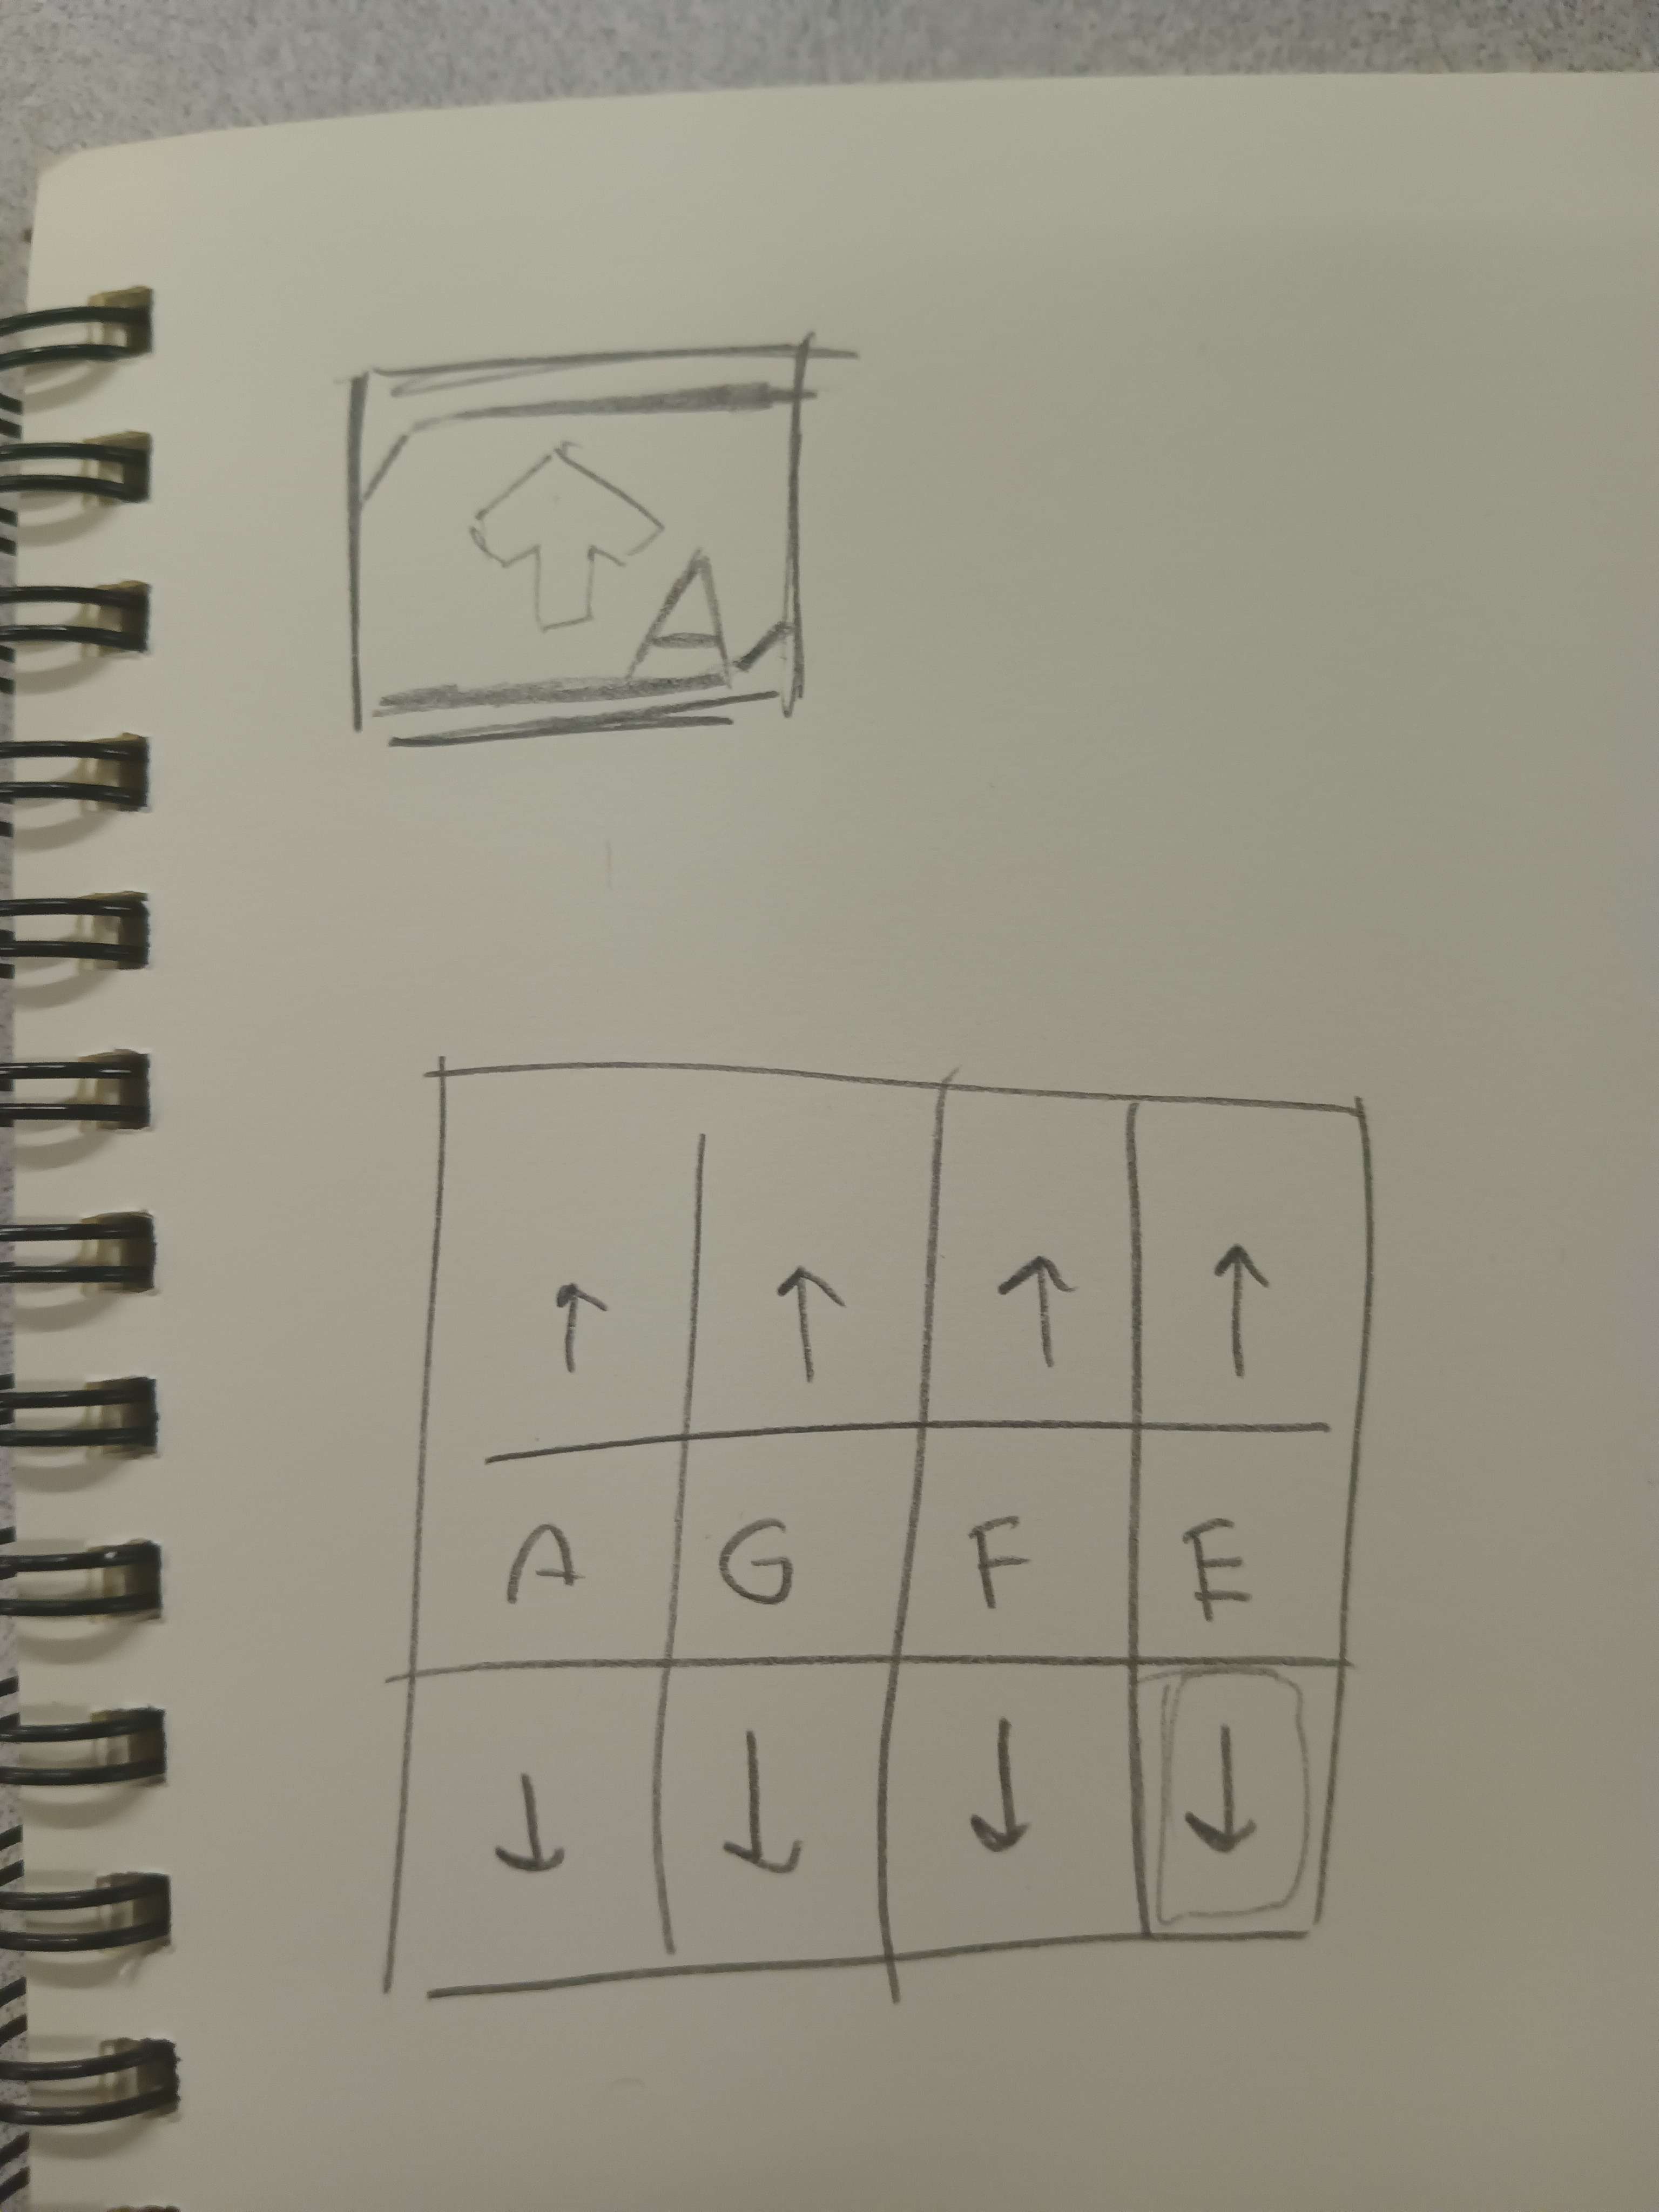 A
A G F E